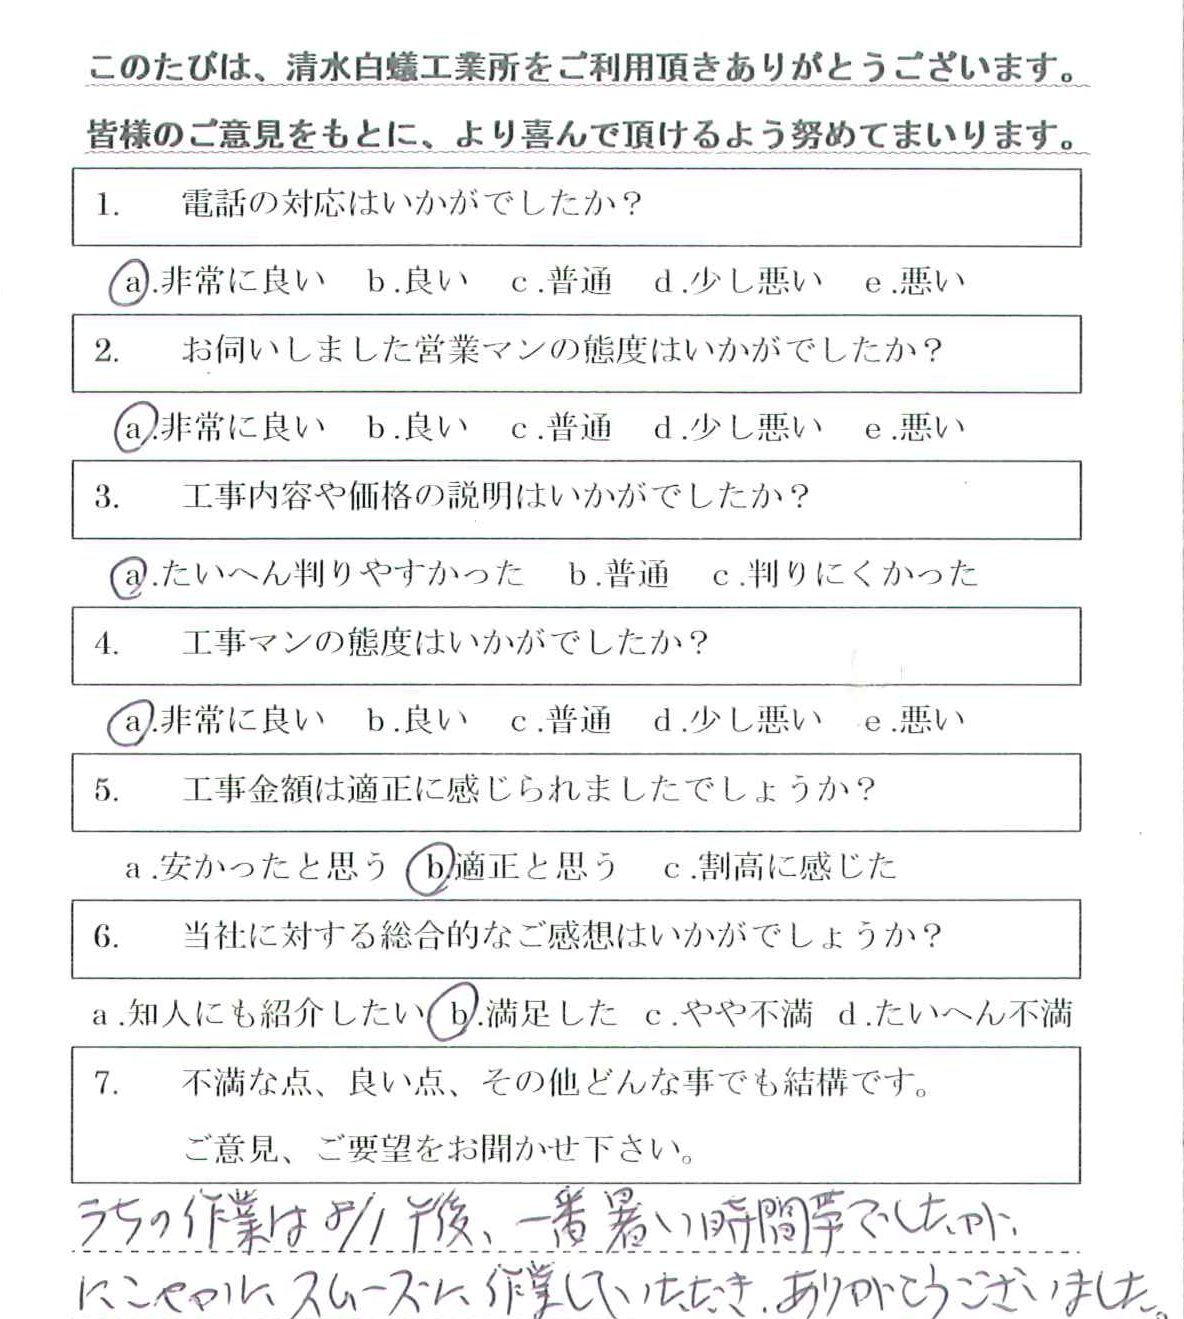 このたびは、清水白蟻工業所をご利用頂きありがとうございます。
皆様のご意見をもとに、より喜んで頂けるよう努めてまいります。
1. 電話の対応はいかがでしたか？
a.非常に良い b.良い c.普通 d.少し悪い e.悪い
2. お伺いしました営業マンの態度はいかがでしたか？
a.非常に良い b.良い c.普通 d.少し悪い e.悪い
3. 工事内容や価格の説明はいかがでしたか？
a.たいへん判りやすかった b.普通 c.判りにくかった
4. 工事マンの態度はいかがでしたか？
a.非常に良い b.良い c.普通 d.少し悪い e.悪い
5. 工事金額は適正に感じられましたでしょうか？
a.安かったと思う b.適正と思う c.割高に感じた
6. 当社に対する総合的なご感想はいかがでしょうか？
a.知人にも紹介したい b.満足した c.やや不満 d.たいへん不満
7. 不満な点、良い点、その他どんな事でも結構です。
ご意見、ご要望をお聞かせ下さい。
うちの作業は8/1午後、一番暑い時間帯でしたが、
にこやかに、スムーズに、作業していただき、ありがとうございました。